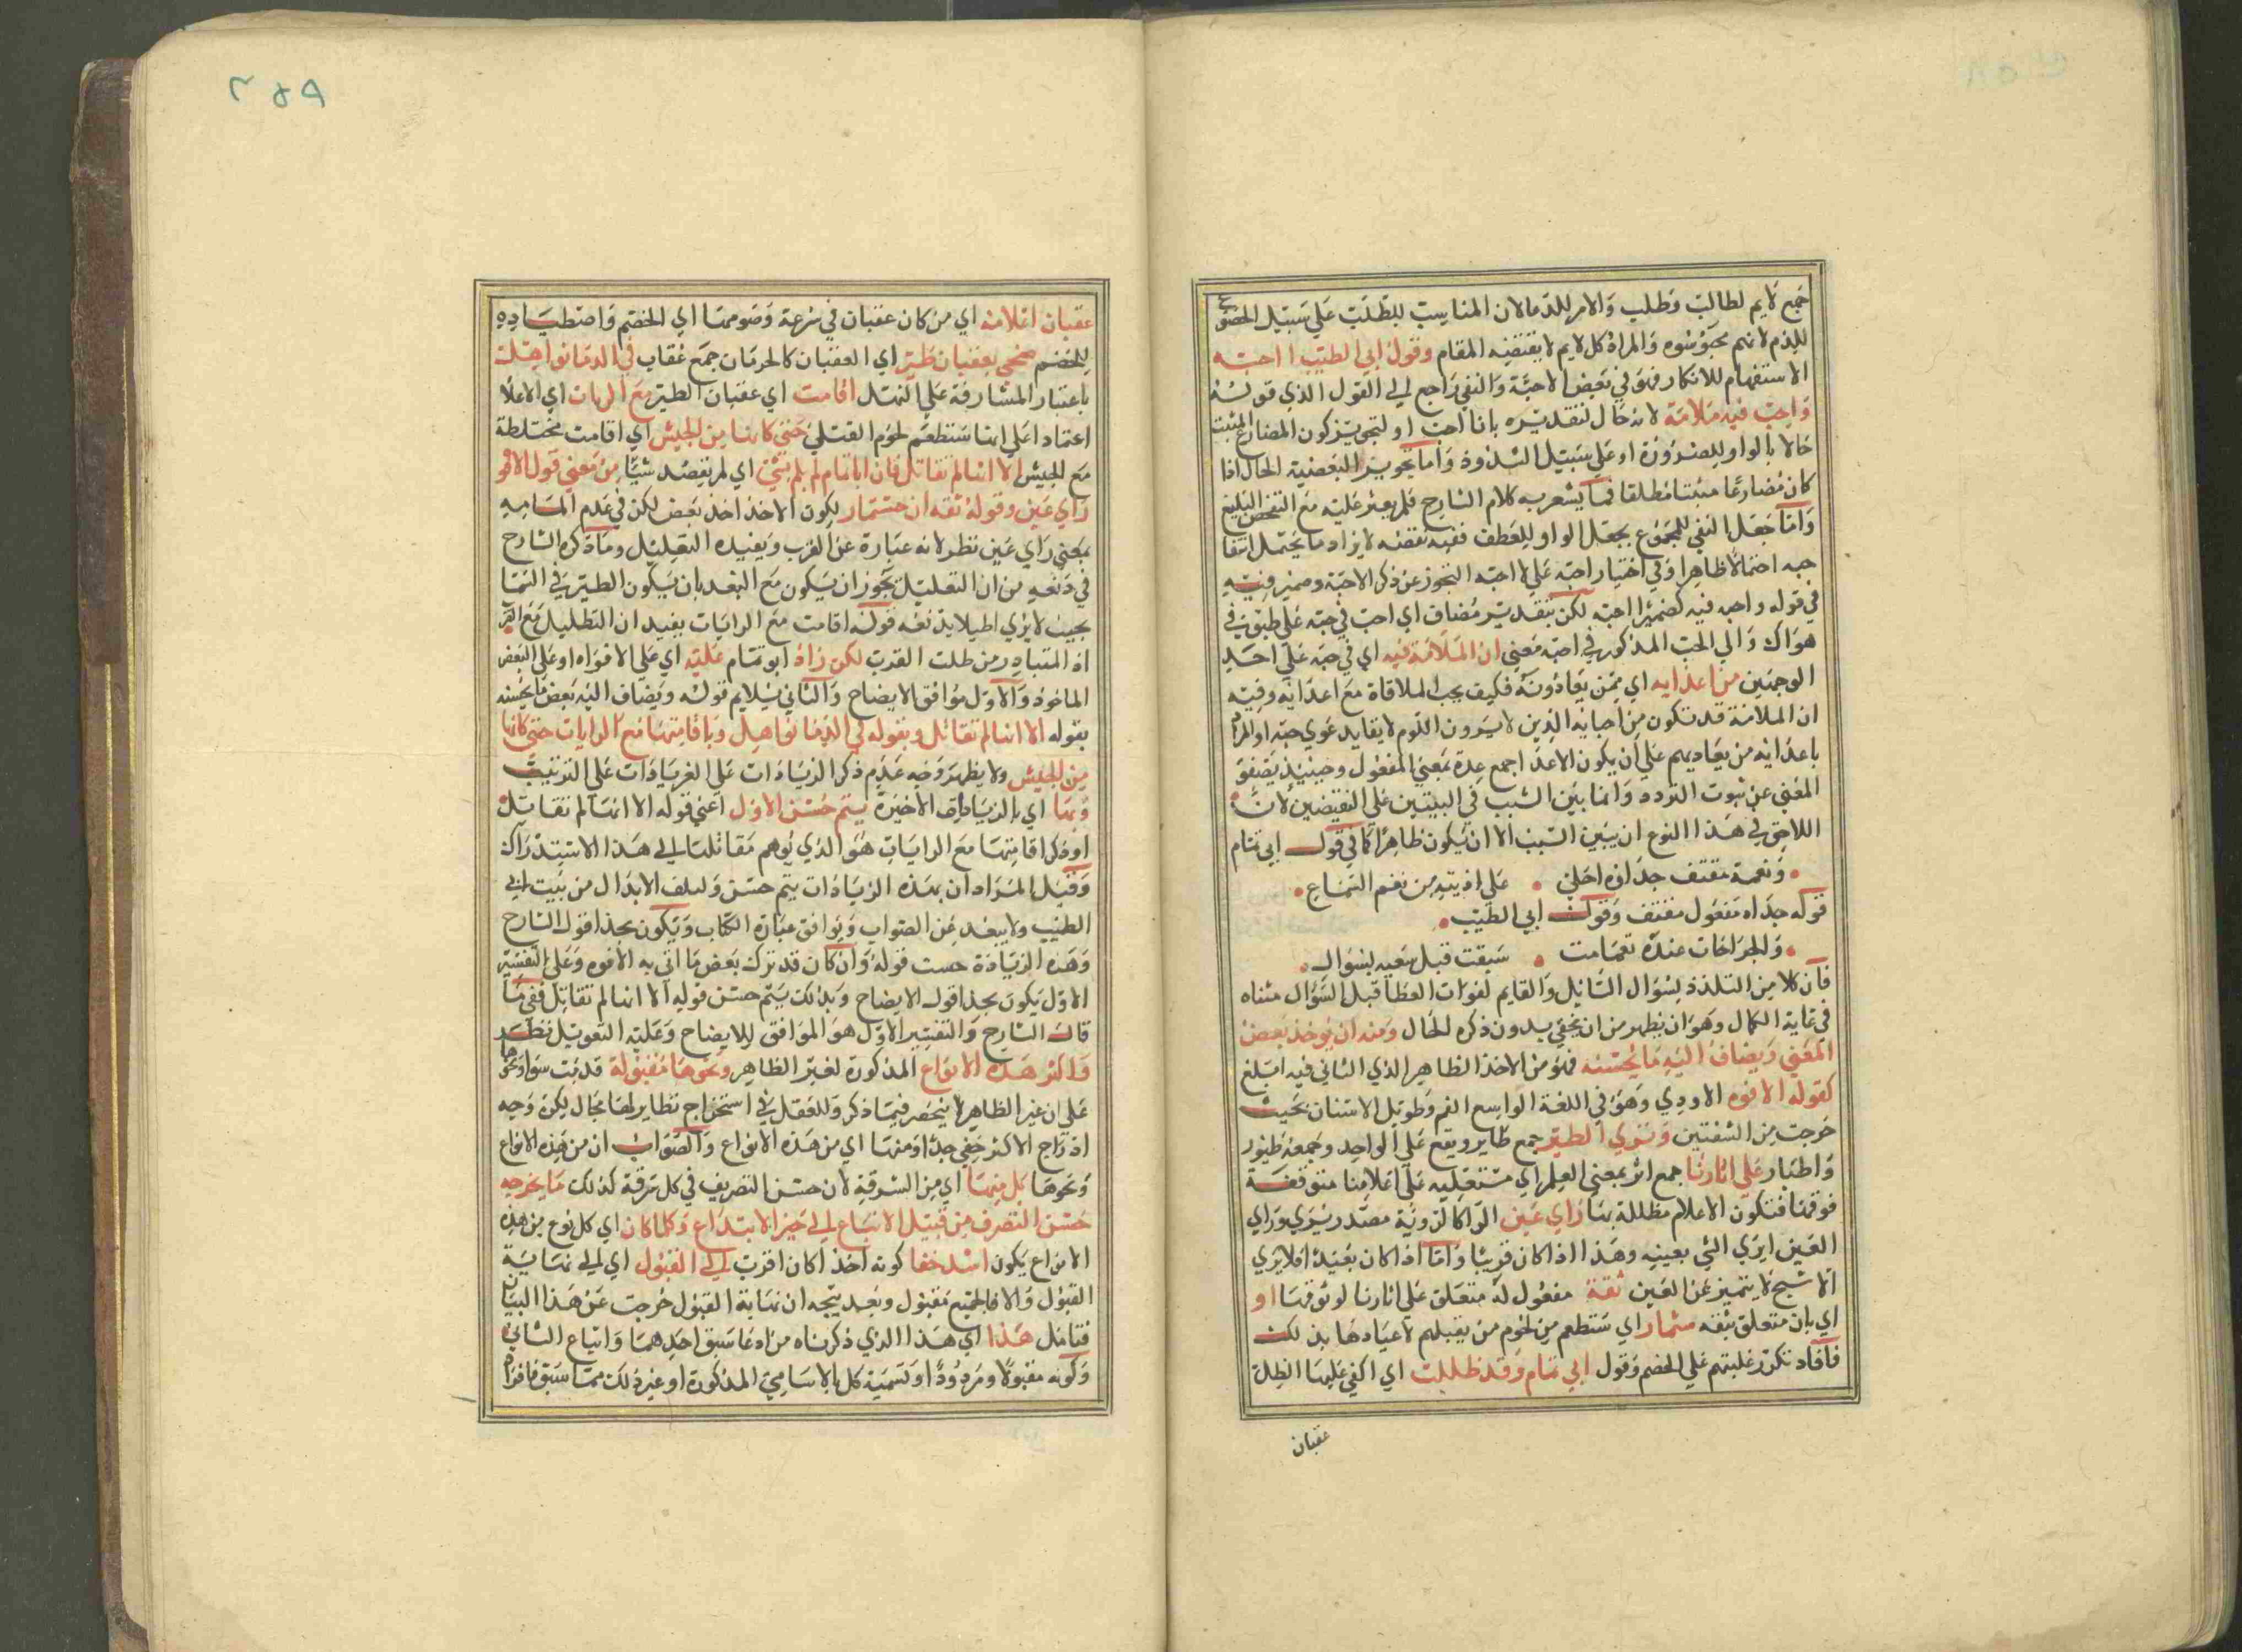 جمع لايم لطالب وطلب والامر للذم الان المناسب للطلب علي سبيل الخصوص
للذم لانهم محبوسوه والمراد كل لايم لا يقتضيه المقام وقول ابي الطيب ااحبه
الاستفهام للانكار فهو في بعض الاحبة والنفي راجع الي القول الذي قوله
واحب فيه ملامة لانه حال لتقديره بانا احب او لتجويز كون المضارع المثبت
حالا بالواو للضرورة او علي سبيل الشذوذ واما تجويز البعضية الحال اذا
كان مضارعا مثبتا مطلقا فما يشعر به كلام الشارح فلم يعثر عليه مع التفحص البليغ
واما جعل النفي للمجموع بجعل الواو للعطف ففيه نقض لا يراد ما يحتمل انتفا
حبه احتمالا ظاهرا وفي اختيار احبه علي لا احبه التجوز عن ذكر الاحبة وضمير فيه
في قوله واحب فيه كضمير ااحبه لكن بتقدير مضاف اي احب في حبه علي طبق في
هواك والي الحب المذكور في احبه معني ان الملامة فيه اي في حبه علي احد
الوجهين من اعدايه اي ممن يعادونه فكيف يحب الملاقاة مع اعدائه وفيه
ان الملامة قد تكون من احبائه الذين لا يرون اللوم لا يقابد عوي حبه او المراد
باعدائه من يعاديهم علي ان يكون الاعدا جمع عدو بمعني المفعول وحينيذ يصفو
المعني عن ثبوت التردد وانما بين السبب في البيتين علي النقيضين لان
اللاحق في هذا النوع ان يبين السبب الا ان يكون ظاهرا كما في قول ابي تمام
ونغمة معتف جدواه احلي • علي اذنيه من نغم السماع •
قوله جداه مفعول معتف وقول ابي الطيب •
والجراحات عنده نغمات • سبقت قبل سيبه بسؤال •
فان كلا من التلذذ لسؤال السائل والقايم لفوات العطا قبل السؤال مثناه
في غاية الكمال وهو ان يظهر من ان يخفي بدون ذكره الحال ومنه ان يوخذ بعض
المعني ويضاف اليه ما يحسنه فهو من الاخذ الظاهر الذي الثاني فيه ابلغ
كقوله الافوه الاودي وهو في اللغة الواسع الفم وطويل الاسنان بحيث
خرجت من الشفتين وتري الطير جمع طاير ويقع علي الواحد وجمعه طيور
واطيار علي اثارنا جمع اثر بمعني العلم اي مستعلية علي اعلامنا متوقفة
فوقها فتكون الاعلام مظللة بها راي عين الرا كالروية مصدر يري وراي
العين اي يري الشي بعينه وهذا اذا كان قريبا واما اذا كان بعيدا فلا يري
الا شبح لا يتميز عن العين ثقة مفعول له متعلق علي اثارنا لوثوقها او
اي بان متعلق بثقه ستمار اي ستطعم من لحوم من يقبلهم لاعيادها بذلك
فافاد تكرر غلبتهم علي الخصم وقول ابي تمام وقد ظللت اي اكفي عليها الظل
عقبان
عقبان اعلامه اي من كان عقبان في سرعة وصومها اي الخصم واصطياده
للخصم ضحي بعقبان طير اي العقبان كالحرمان جمع عقاب في الدما نواهل
باعتبار المشارفة علي النهل اقامت اي عقبان الطير مع الرايات اي الاعلا
اعتمادا علي انها ستطعم لحوم القتلي حتي كانها من الجيش اي اقامت مختلطة
مع الجيش الا انها لم تقاتل فان اباتمام لم يلم بشئ اي لم يقصد شيا من معني قول الافوه
راي عين وقوله ثقة ان ستمار ليكون الاخذ اخذ بعض لكن في عدم المامه
بمعني راي عين نظر لانه عبارة عن القرب ويفيده التظليل وما ذكره الشارح
في دفعه من ان التظليل يجوز ان يكون مع البعد بان يكون الطير في السما
بحيث لا يري اصلا يدفعه قوله اقامت مع الرايات يفيد ان التظليل مع القر
اذ المتبادر من ظلت القرب لكن زاد ابو تمام عليه اي علي الافواه او علي البعض
الماخوذ والاول موافق الايضاح والثاني يلايم قوله ويضاف اليه بعض ما يحسنه
بقوله الا انها لم تقاتل وبقوله في الدما نواهل وباقامتها مع الرايات حتي كانها
من الجيش ولا يظهر وجه عدم ذكر الزيادات علي الترتيب
وبها اي بالزيادة الاخيرة يتم حسن الاول اعني قوله الا انها لم تقاتل
اوذكر اقامتها مع الرايات هو الذي يوهم مقاتلتها الي هذا الاستدراك
وقيل المراد ان بهذه الزيادات يتم حسن ولطف الابدال من بيت ابي
الطيب ولا يبعد عن الصواب ويوافق عبارة الكتاب ويكون بحذا قول الشارح
وهذه الزيادة حست قوله وان كان قد ترك بعض ما اتي به الافوه وعلي التفسير
الاول يكون بحذا قول الايضاح وبذلك يتم حسن قوله الا انها لم تقاتل ففي ما
قال الشارح والتفسير الاول هو الموافق للايضاح وعليه التعويل نظر
واكثر هذه الانواع المذكورة لغير الظاهر ونحوها مقبولة قد نبت سوا ونحوها
علي ان غير الظاهر لا ينحصر فيما ذكر وللعقل في استخراج نظاير لها مجال لكن وجه
ادراج الاكثر خفي جدا ومنها اي من هذه الانواع والصواب ان من هذه الانواع
ونحوها كل منها اي من السرقة لان حسن التصريف في كل سرقة كذلك ما يخرجه
حسن التصرف من قبيل الاتباع الي حيز الابتداع وكلما كان اي كل نوع من هذه
الانواع يكون اشد خفا كونه اخذا كان اقرب الي القبول اي الي نهاية
القبول والا فالجميع مقبول وبعد يتجه ان نهاية القبول خرجت عن هذا البيان
فتامل هذا اي هذا الذي ذكرناه من ادعا سبق احدهما واتباع الثاني
وكونه مقبولا ومردودا وتسمية كل بالاسامي المذكورة او غير ذلك مما سبق